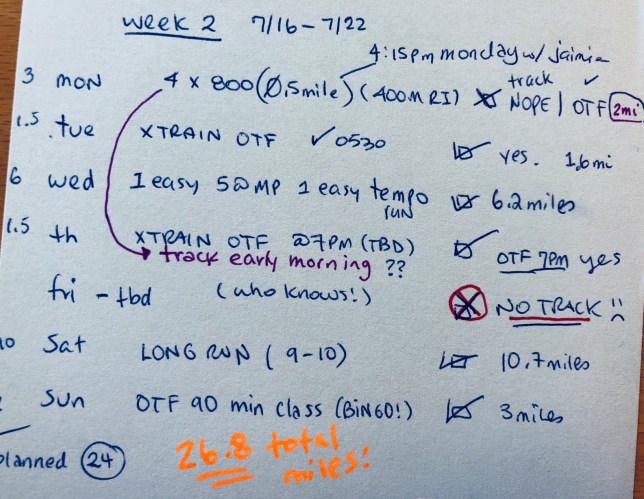 week 2 7/16 - 7/22
4:15pm monday w/ jaimie
3 mon 4 x 800 (0.5mile) (400M RI) track ✓ NOPE | OTF 2mi
1.5 tue XTRAIN OTF ✓ 0530 yes. 1.6 mi
6 wed 1 easy 5@MP 1 easy tempo run 6.2 miles
1.5 th XTRAIN OTF @7PM (TBD) OTF 7pm yes
track early morning ??
fri - tbd (who knows!) NO TRACK :(
10 Sat LONG RUN (9-10) 10.7 miles
Sun OTF 90 min class (BiNGO!) 3 miles
planned 24 26.8 total miles!